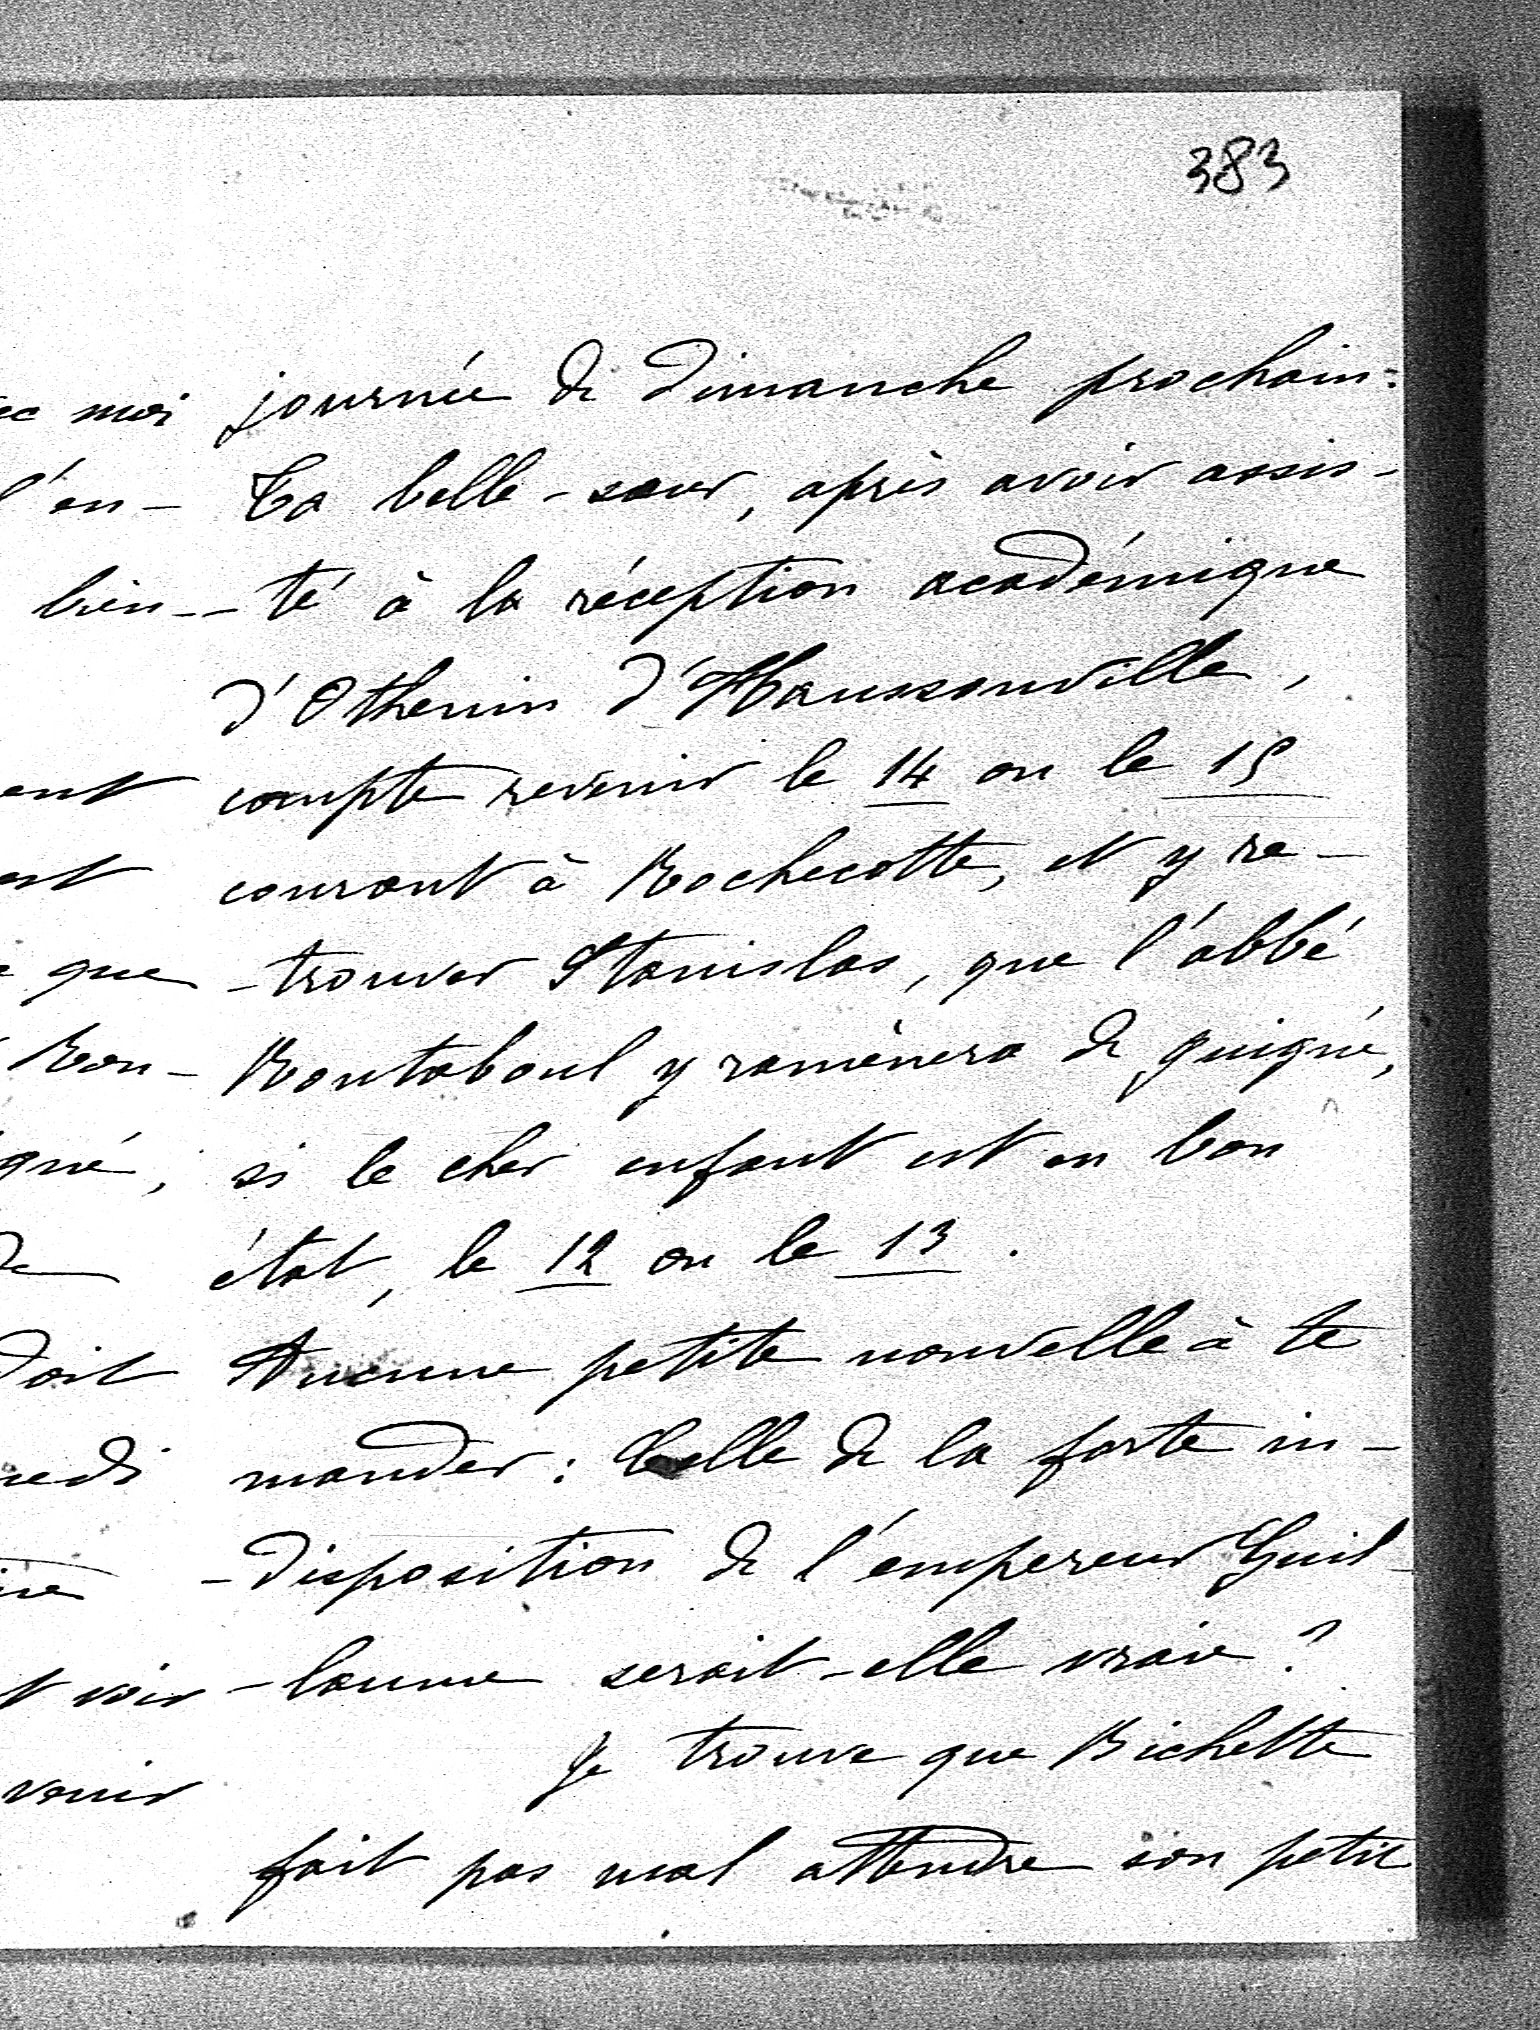 383
journée de dimanche prochain:
Ta belle-sœur, après avoir assis-
-té à la réception académique
d'Othenin d'Haussonville,
compte revenir le 14 ou le 15
courant à Rochecotte, et y re-
-trouver Stanislas, que l'abbé
Rontaboul y ramènera de Guigné,
si le cher enfant est en bon
état, le 12 ou le 13.
Aucune petite nouvelle à te
mander: Celle de la forte in-
-disposition de l'empereur Guil-
-laume serait-elle vraie?
Je trouve que Bichette
fait pas mal attendre son petit
moi
l'en-
bien-
que
Ron-
doit
voir
venir